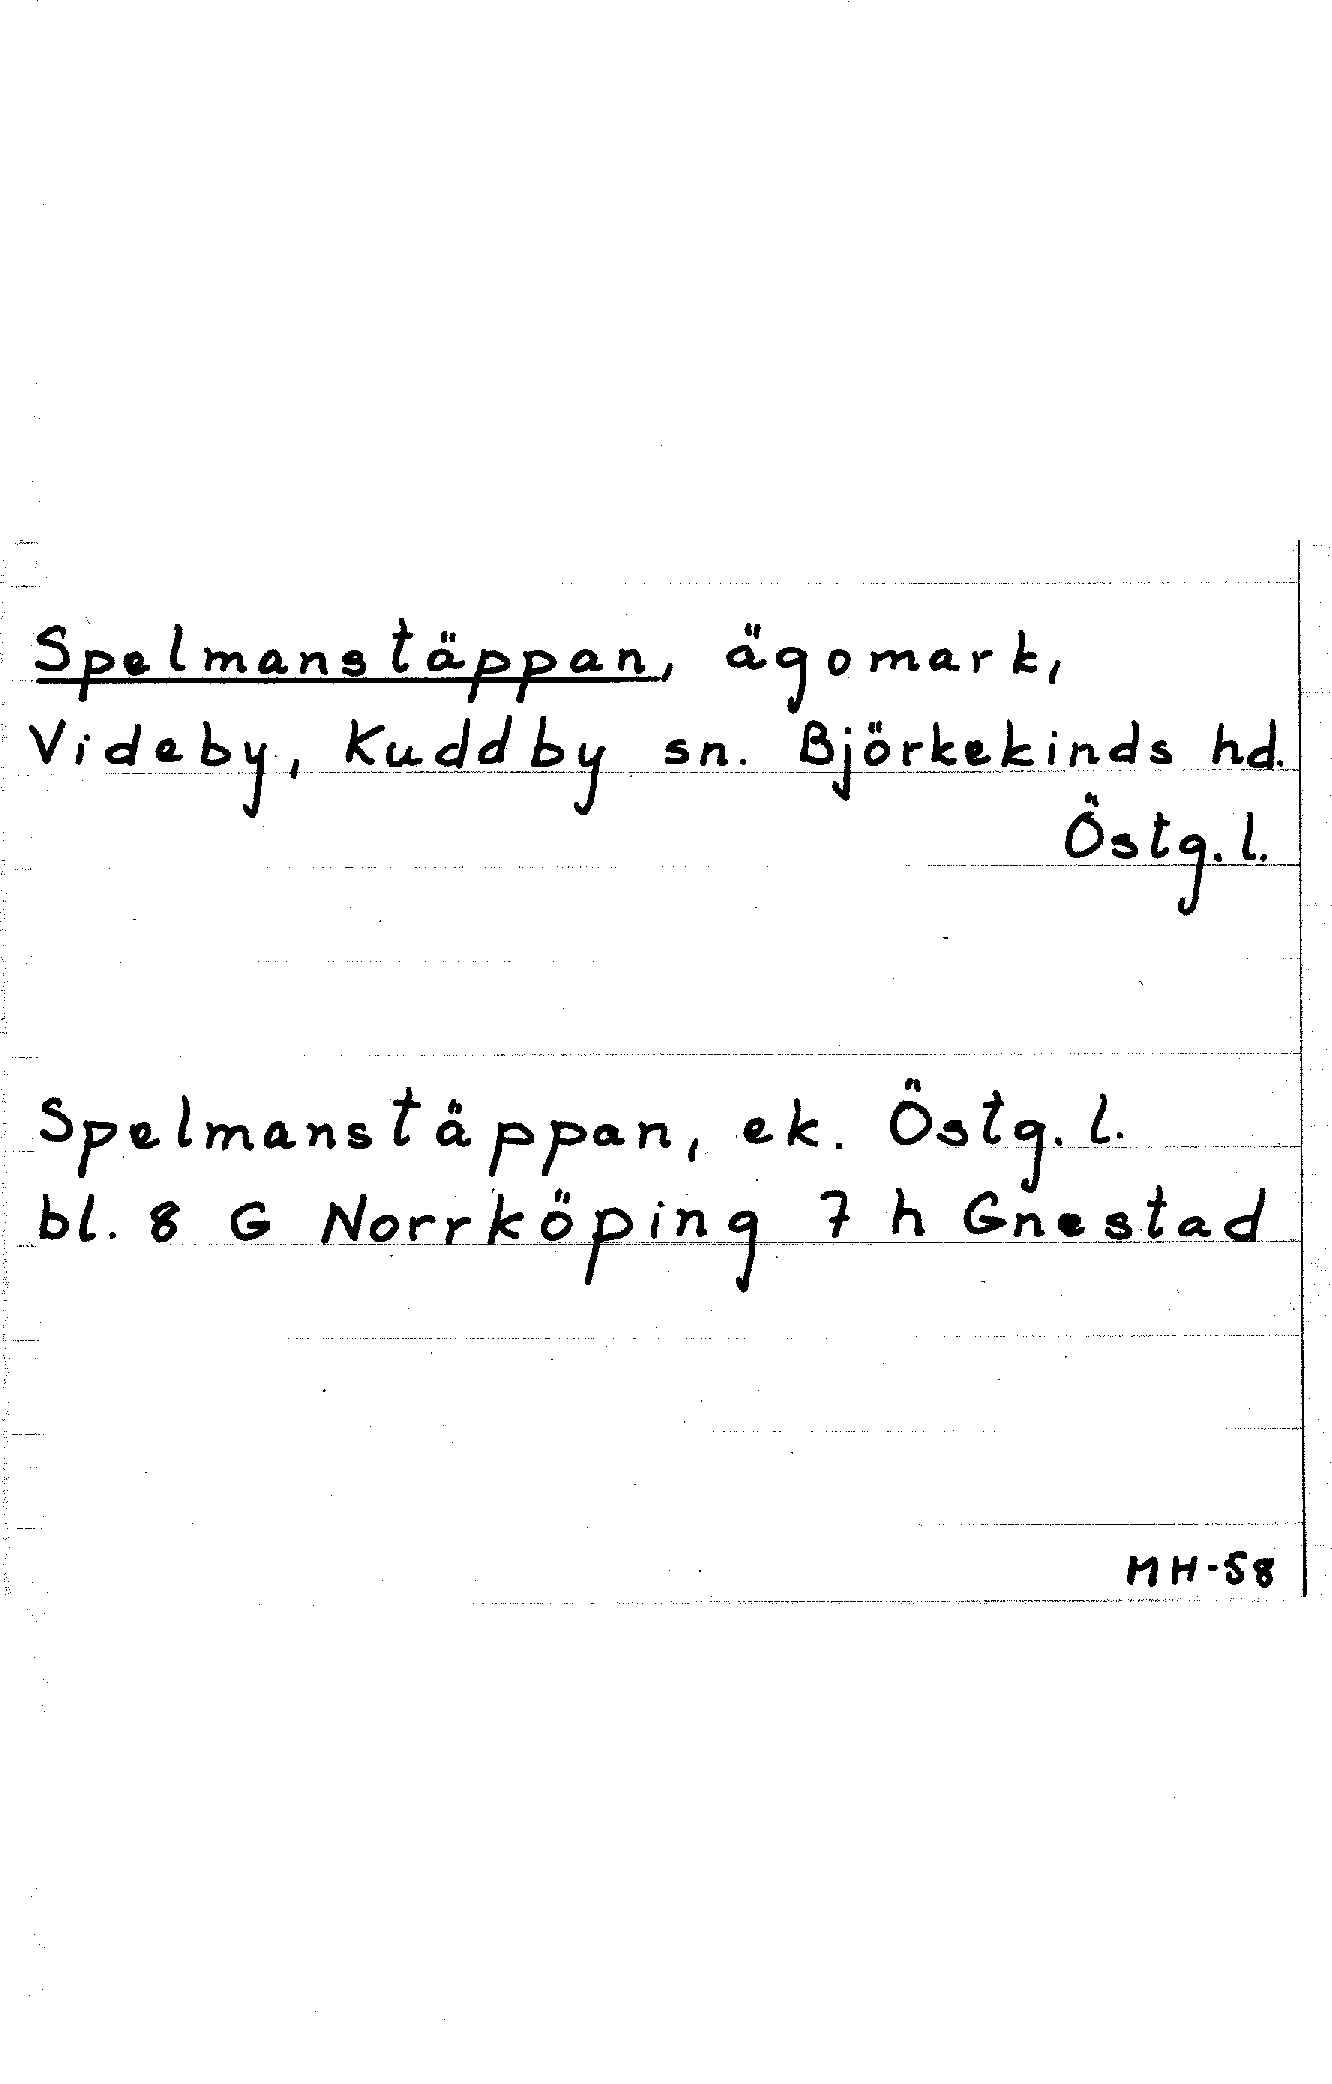 Spelmanstäppan, ägomark,
Videby, Kuddby sn. Björkekinds hd.
Östg. l.
Spelmanstäppan, ek. Östg. l.
bl. 8 G Norrköping 7 h Gnestad
MH-58